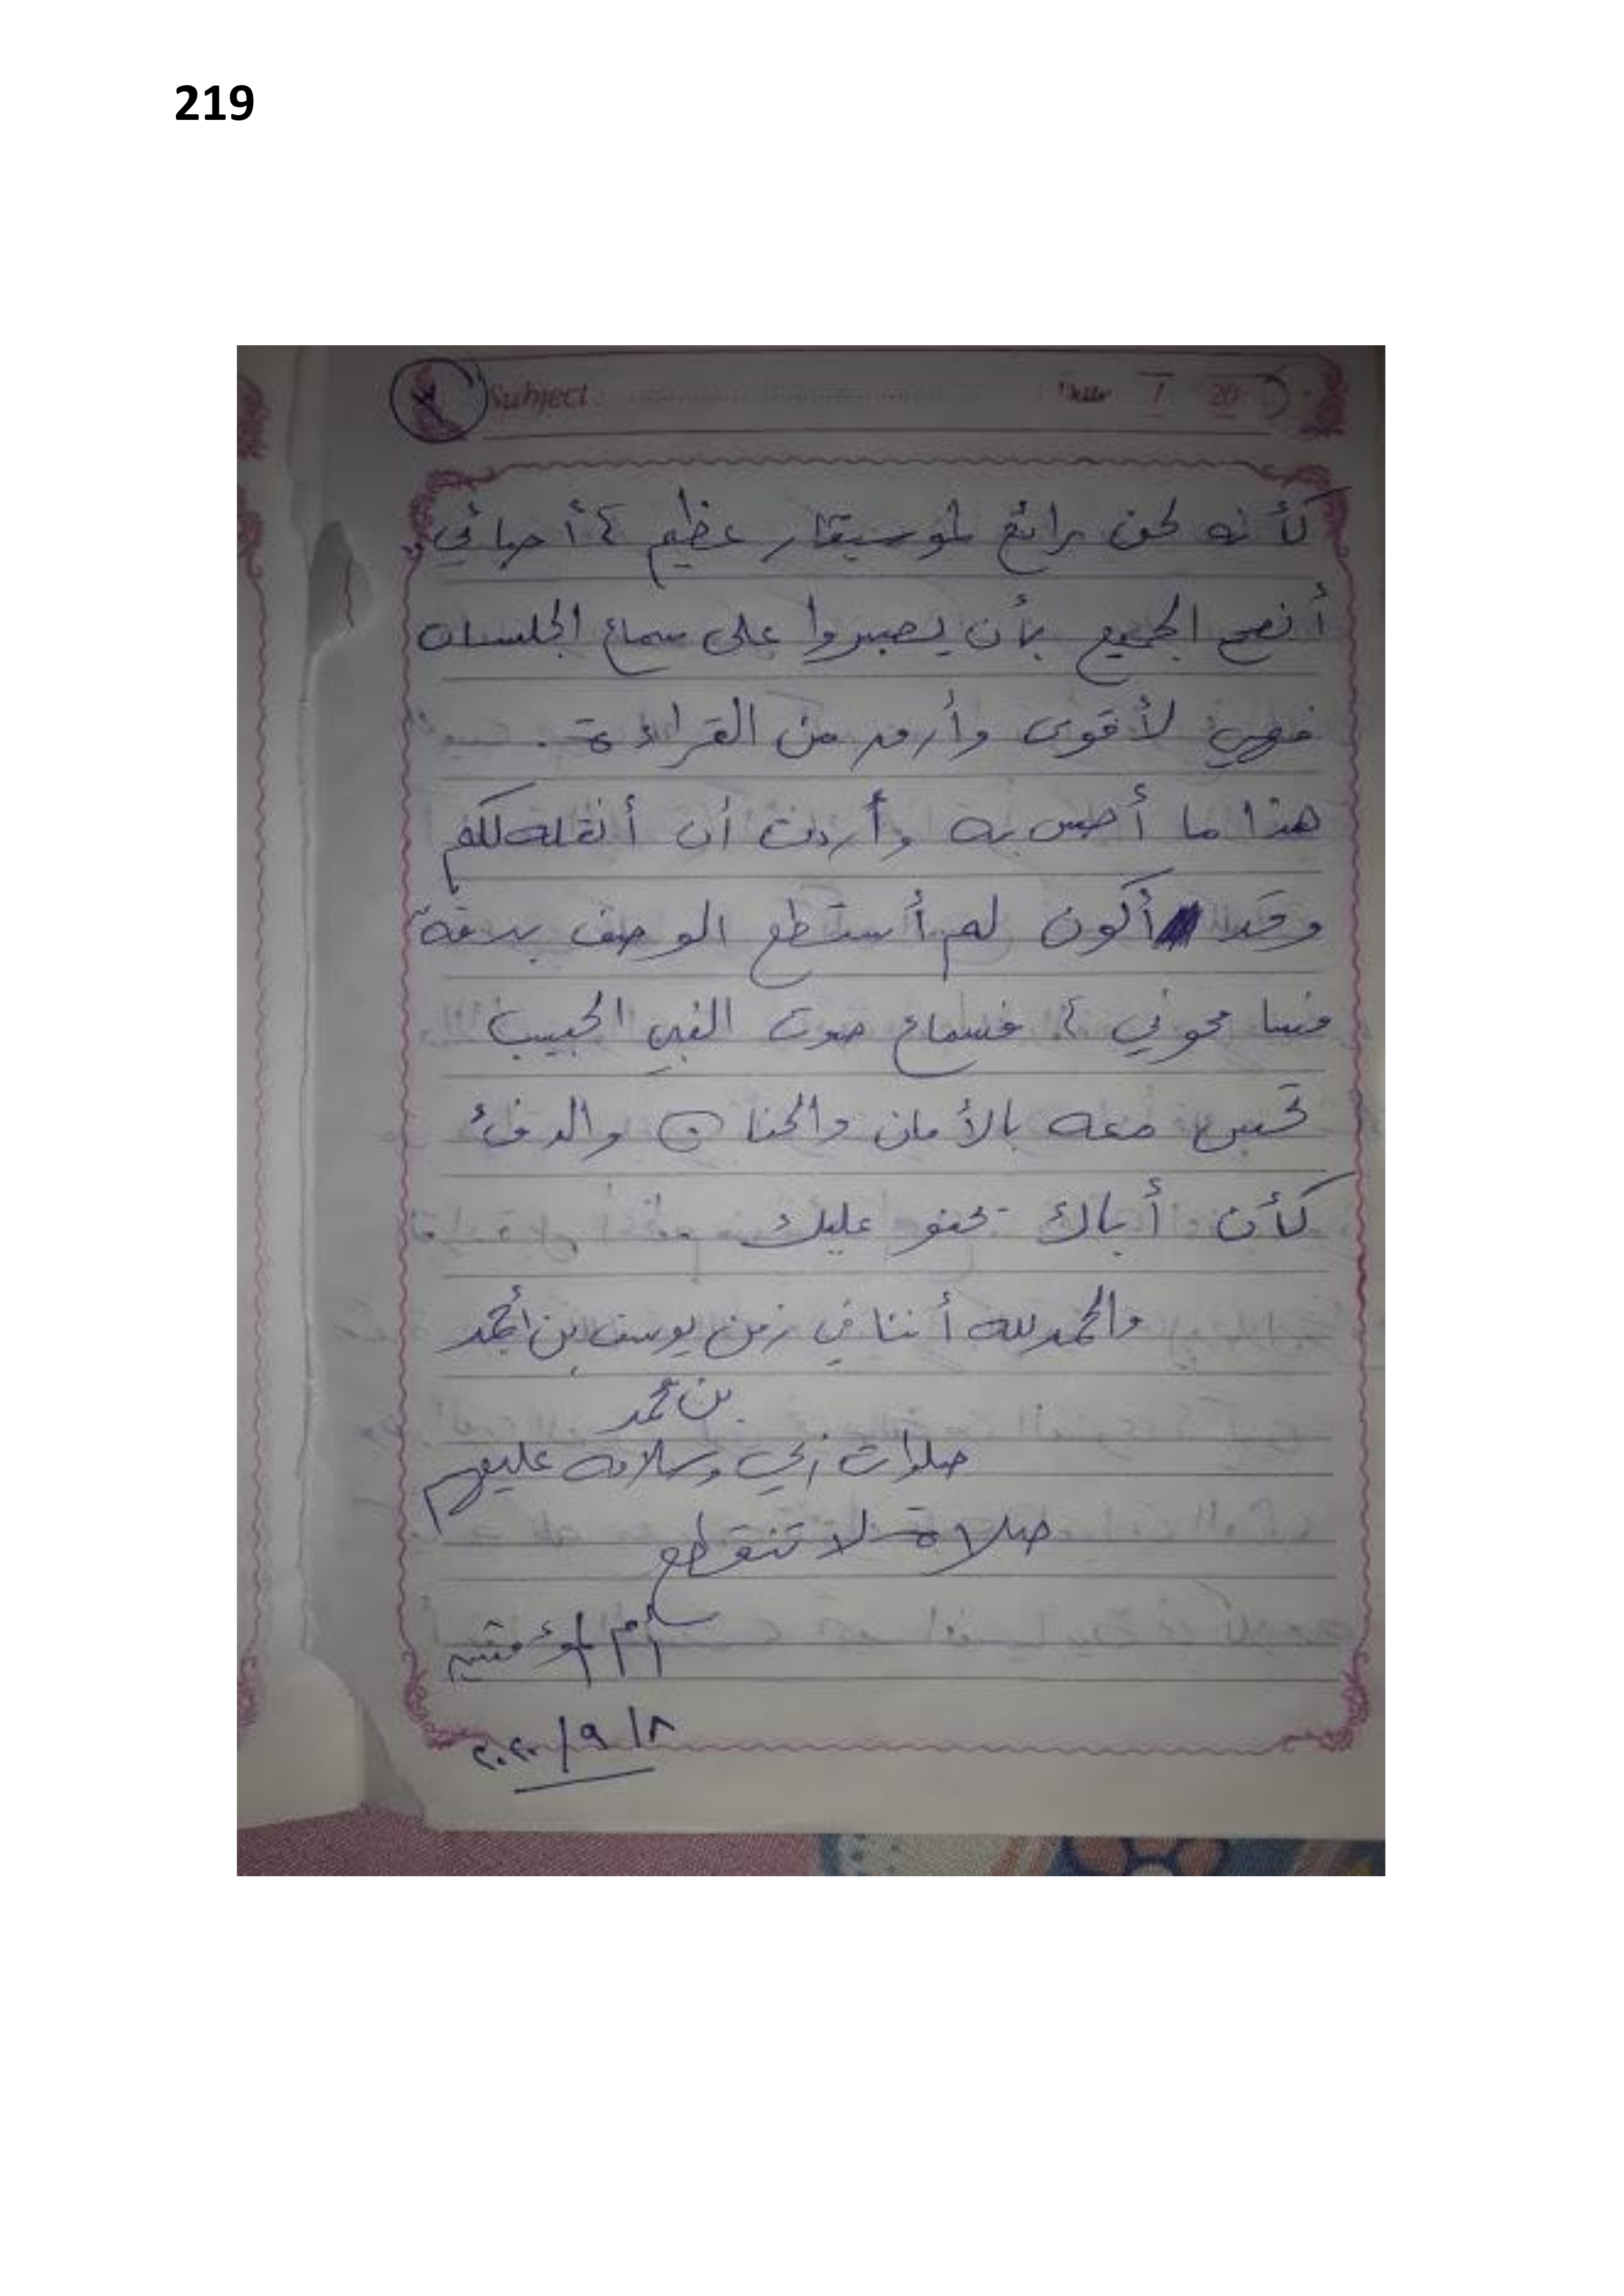 219
Subject: Date / 20
كأنه لحن رائع لموسيقار عظيم ، أحبائي
أنصح الجميع بأن يصبروا على سماع الجلسات
فهي لأقوى وأروع من القراءة .
هذا ما أحس به وأردت أن أنقله لكم
وقد أكون لم أستطع الوصف بدقة
فسامحوني ، فسماع صوت النبي الحبيب
تحس معه بالأمان والحنان والدفئ
كأن أباك يحنو عليك
والحمد لله أننا في زمن يوسف بن أحمد
بن محمد
صلوات ربي وسلامه عليهم
صلاة لا تنقطع
٨/٩/٢٠٢٠